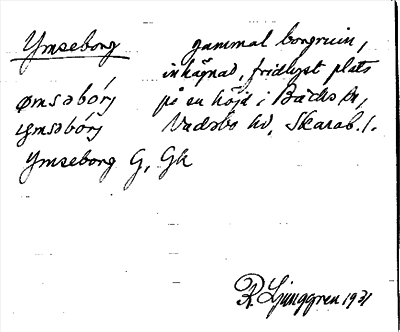 Ymseborg gammal borgruin,
inhägnad, fridlyst plats
ømsəbórj på en höjd i Bäcks sn,
ymsəbórj Vadsbo hd, Skarab. l.
Ymseborg G, Gk
R. Ljunggren 1931